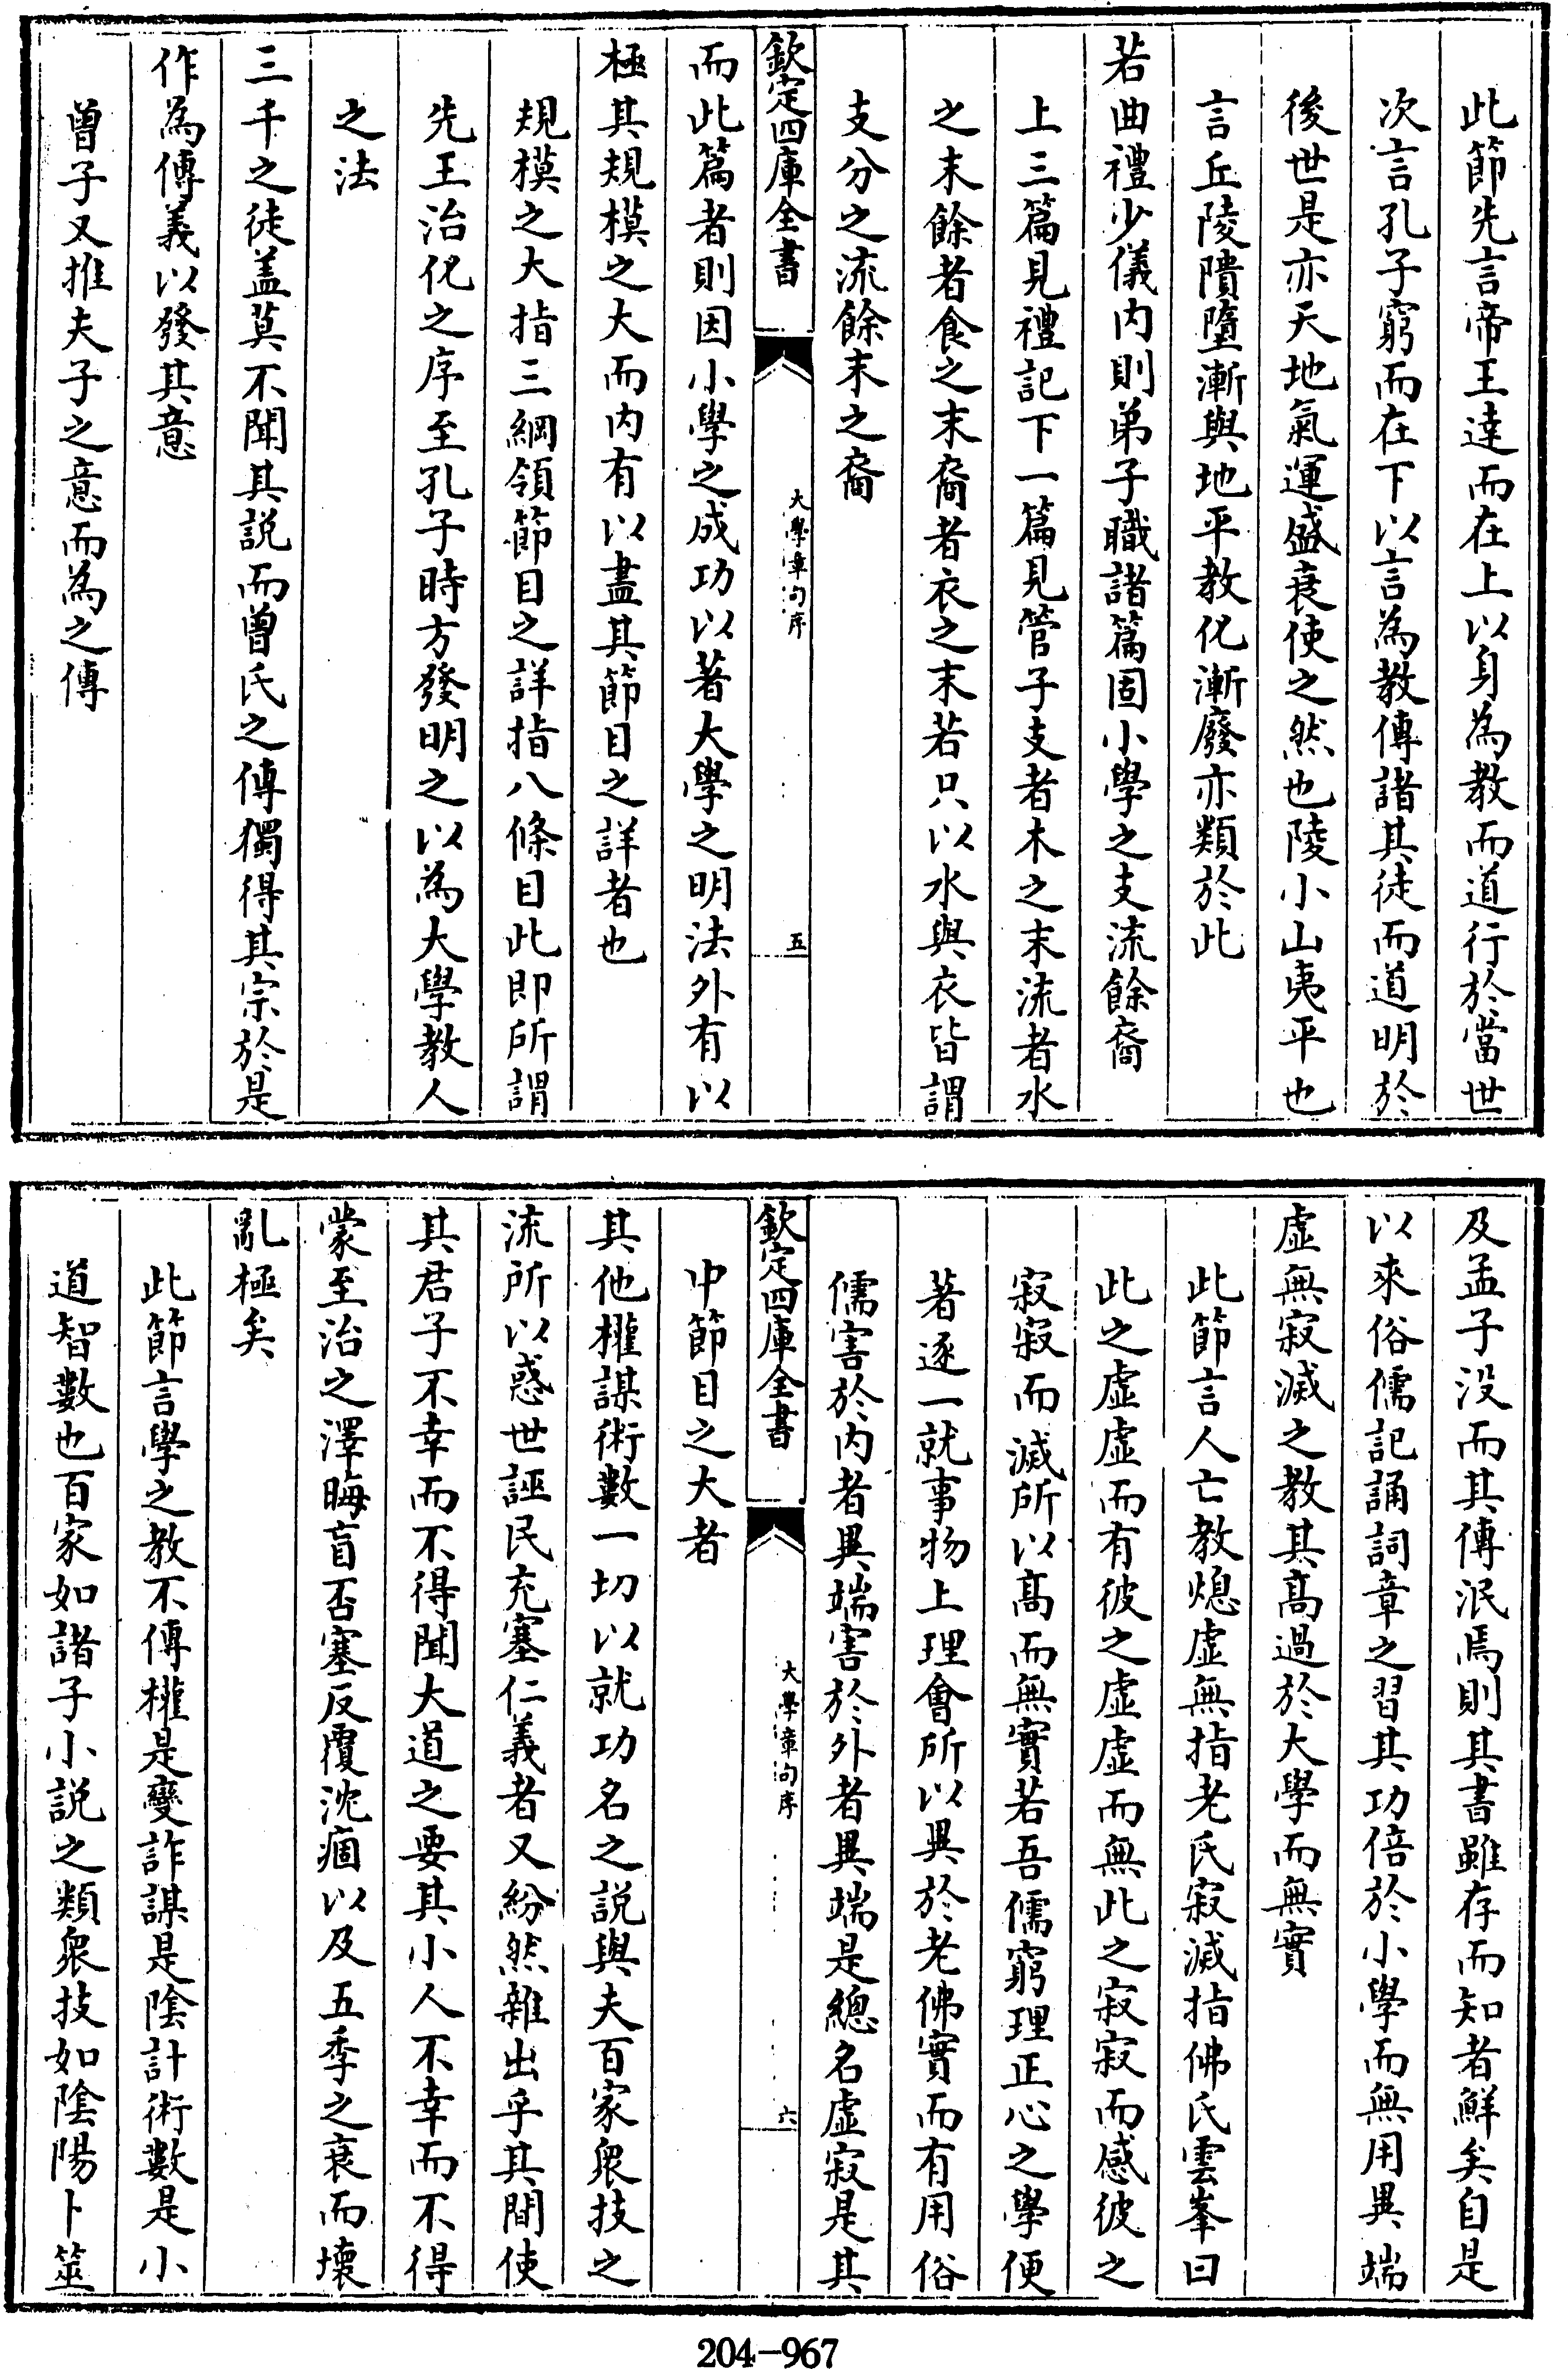 此節先言帝王達而在上以身為教而道行於當世
次言孔子窮而在下以言為教傳諸其徒而道明於
後世是亦天地氣運盛衰使之然也陵小山夷平也
言丘陵隤墮漸與地平教化漸廢亦類於此
若曲禮少儀内則弟子職諸篇固小學之支流餘裔
上三篇見禮記下一篇見管子支者木之末流者水
之末餘者食之末裔者衣之末若只以水與衣皆謂
支分之流餘末之裔
欽定四庫全書
大學章句序
五
而此篇者則因小學之成功以著大學之明法外有以
極其規模之大而内有以盡其節目之詳者也
規模之大指三綱領節目之詳指八條目此即所謂
先王治化之序至孔子時方發明之以為大學教人
之法
三千之徒盖莫不聞其說而曾氏之傳獨得其宗於是
作為傳義以發其意
曾子又推夫子之意而為之傳
及孟子沒而其傳泯焉則其書雖存而知者鮮矣自是
以來俗儒記誦詞章之習其功倍於小學而無用異端
虛無寂滅之教其髙過於大學而無實
此節言人亡教熄虛無指老氏寂滅指佛氏雲峯曰
此之虛虛而有彼之虛虛而無此之寂寂而感彼之
寂寂而滅所以髙而無實若吾儒窮理正心之學便
著逐一就事物上理會所以異於老佛實而有用俗
儒害於内者異端害於外者異端是總名虛寂是其
欽定四庫全書
大學章句序
六
中節目之大者
其他權謀術數一切以就功名之說與夫百家衆技之
流所以惑世誣民充塞仁義者又紛然雜出乎其間使
其君子不幸而不得聞大道之要其小人不幸而不得
蒙至治之澤晦盲否塞反覆沈痼以及五季之衰而壞
亂極矣
此節言學之教不傳權是變詐謀是陰計術數是小
道智數也百家如諸子小說之類衆技如陰陽卜筮
204-967